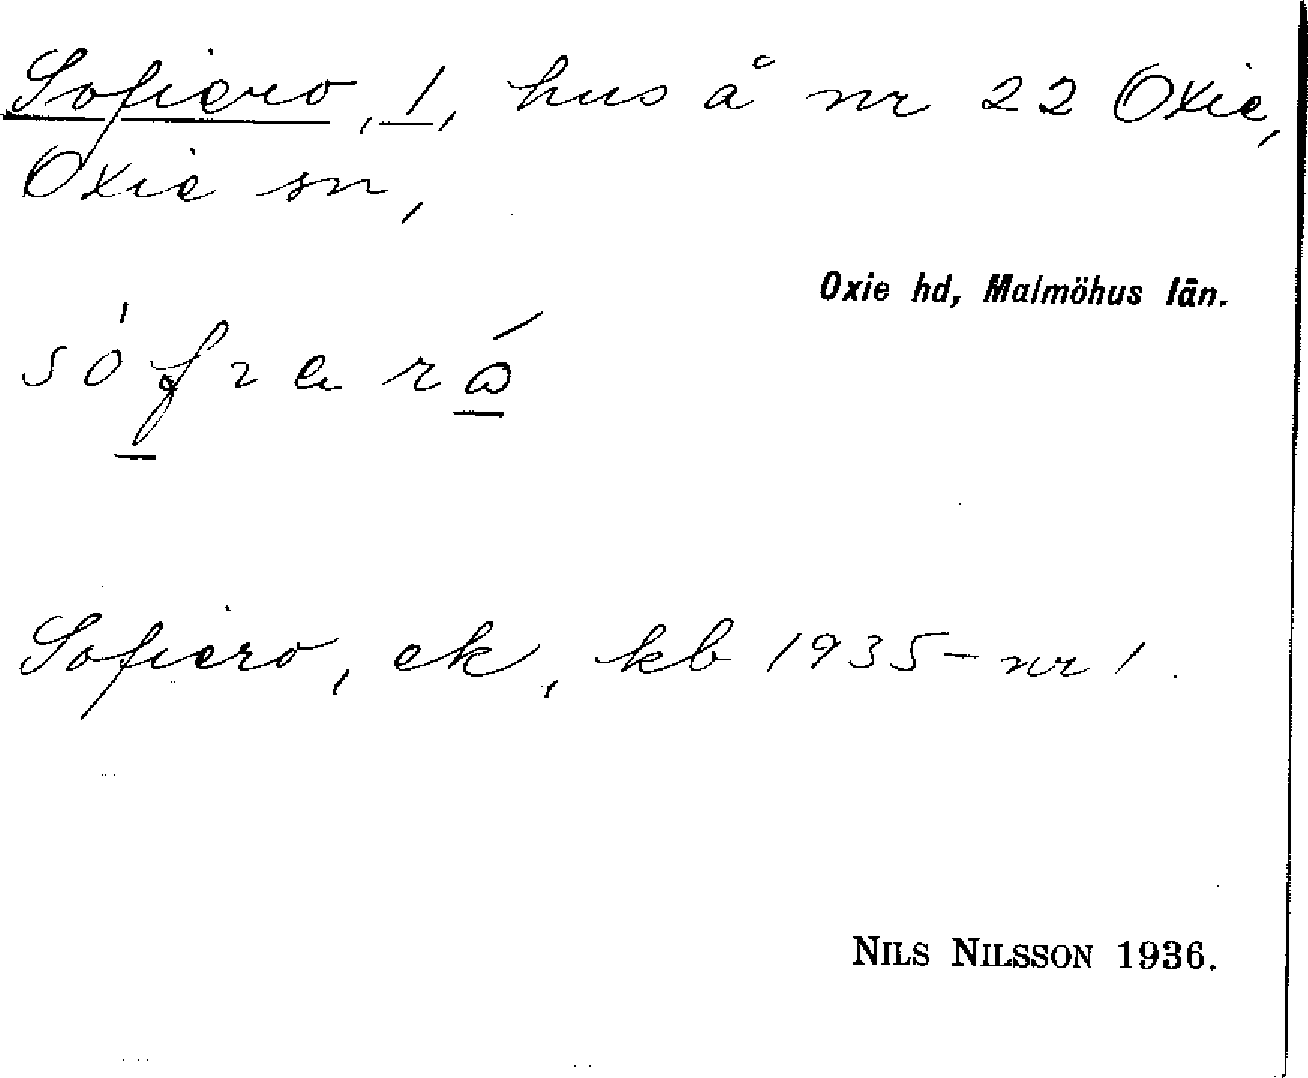 Sofiero, 1, hus å nr 22 Oxie,
Oxie sn,
Oxie hd, Malmöhus län.
Sofiero, ek, kb 1935- nr 1.
NILS NILSSON 1936.